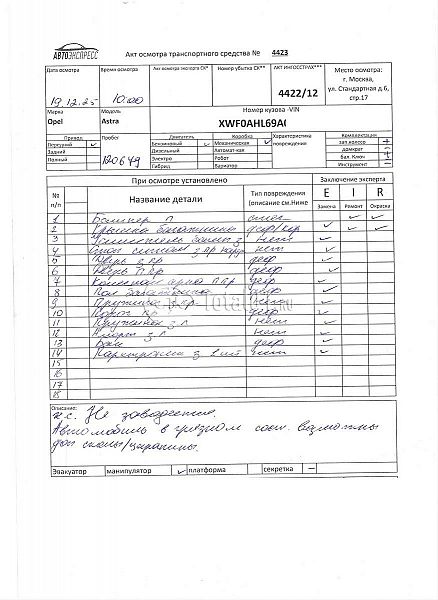 АВТОЭКСПРЕСС
Акт осмотра транспортного средства № 4423
Дата осмотра Время осмотра Акт осмотра эксперта СК* Номер убытка СК** АКТ ИНГОССТРАХ*** Место осмотра:
г. Москва,
ул. Стандартная д.6,
стр.17
19.12.25 10:00 4422/12
Марка Модель Номер кузова -VIN
Opel Astra XWF0AHL69A
Привод Пробег Двигатель Коробка Характеристика повреждений Комплектация
Передний ✓ Бензиновый ✓ Механическая ✓ зап.колесо +
Задний Дизельный Автоматная домкрат
Полный 120679 Электро Робот Бал. Ключ +
Гибрид Вариатор Инструмент −
При осмотре установлено Заключение эксперта
№ п/п Название детали Тип повреждения (описание см.Ниже E I R
Замена Ремонт Окраска
1 Бампер П
2 Крышка багажника деф/кор
3 Усилитель з нет
4 Стоп сигнал з пр нет
5 Дверь з пр деф
6 Дверь П пр деф
7 П пр
8 Пол багажника деф
9 Пружина пр нет
10 пр деф
11 з л нет
12 з л
13 деф
14 Парктроник з 1 шт нет
15
16
17
18
Описание:
к.с. Не заводится.
Автомобиль в грязном сост. возможны
доп сколы/царапины.
Эвакуатор манипулятор ✓ платформа секретка −